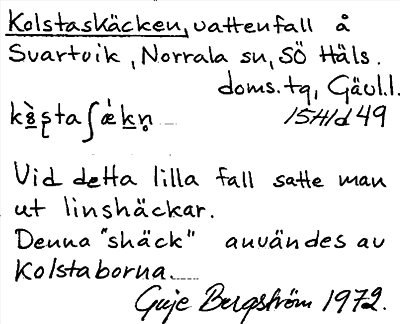 Kolstaskäcken, vattenfall å
Svartvik, Norrala sn, SÖ Häls.
doms. tq, Gävl.l.
15H1d 49
Vid detta lilla fall satte man
ut linshäckar.
Denna "shäck" användes av
Kolstaborna.
Guje Bergström 1972.